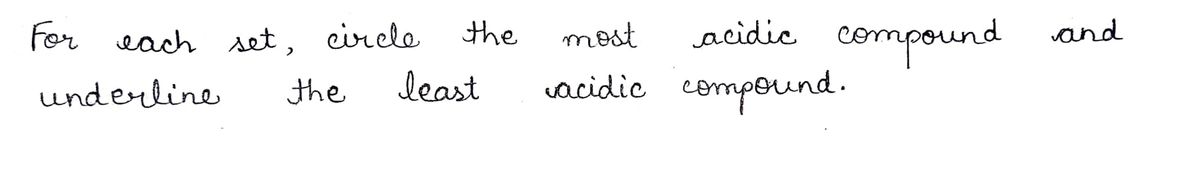 For each set, circle the most acidic compound and
underline the least acidic compound.